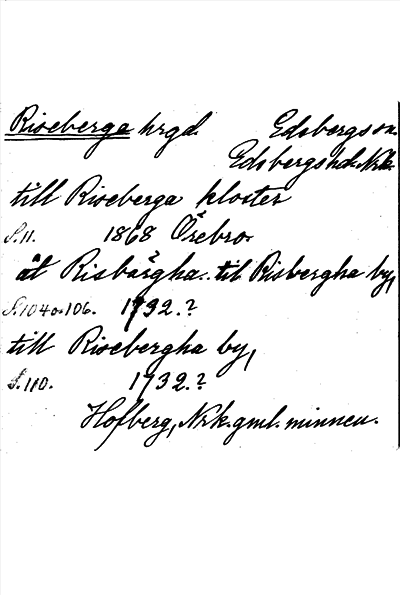 Riseberga hrgd. Edsbergs sn.
Edsbergs hd. Nrk.
till Riseberga kloster
S. 11. 1868 Örebro.
åt Risbärgha.. til Risbergha by,
S. 104 o. 106. 1732.?
till Risebergha by,
S. 110. 1732.?
Hofberg, Nrk. gml. minnen.